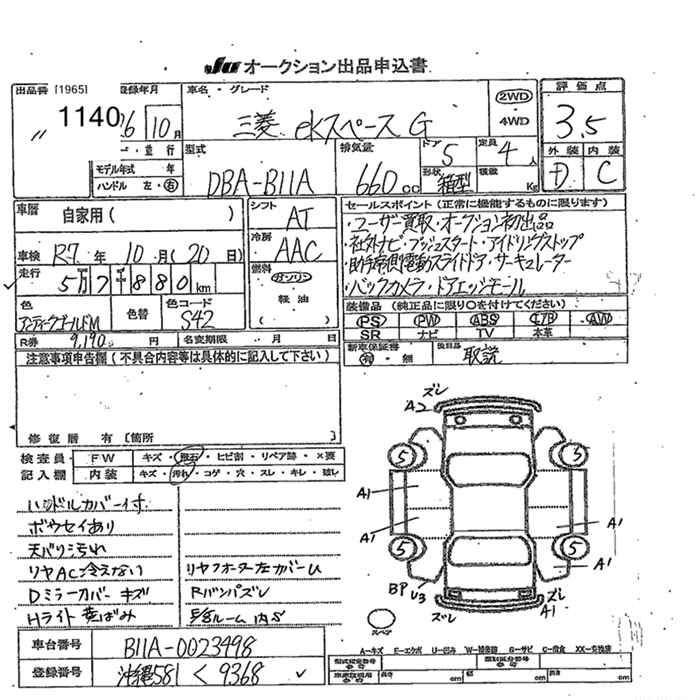 JU オークション出品申込書
出品番 [1965] 登録年月 車名・グレード 2WD 評価点
〃 1140 26 10月 三菱 eKスペース G 4WD 3.5
重・並行 型式 排気量 ドア 5 定員 4人 外装 内装
モデル年式 年 DBA-B11A 660cc 形状 箱型 積載 Kg D C
ハンドル 左・右
車歴 自家用( ) シフト AT セールスポイント(正常に機能するものに限ります)
・ユーザー買取・オークション初出品
車検 R-7年 10月(20日) 冷房 AAC ・社外ナビ・プッシュスタート・アイドリングストップ
走行 5万7千880km 燃料 ガソリン ・助手席側電動スライドドア・サーキュレーター
軽油 ・バックカメラ・ドアエッジモール
色 色替 色コード ( ) 装備品(純正品に限り○を付けてください)
アンティークゴールドM S42 PS PW ABS エアB AW
SR ナビ TV 本革
R券 9,190円 名変期限 月 日 新車保証書 有・無 後日品 取説
注意事項申告欄(不具合内容等は具体的に記入して下さい)
修復歴 有〔箇所
検査員 FW キズ・飛石・ヒビ割・リペア跡・×要
記入欄 内装 キズ・汚れ・コゲ・穴・スレ・キレ・破レ
ハンドルカバー付
ボウセイあり
天バリ汚れ
リヤAC冷えない リヤクオーター左カバーU
Dミラーカバーキズ Rバンパズレ
Hライト黄ばみ
ズレ
A2
5 5
A1
A1 A1
5 5
A1
BP U3
ズレ ズレ
A1
スペア
車台番号 B11A-0023498
登録番号 沖縄581 く 9368
A-キズ E-エクボ U-凹み W-補修跡 S-サビ C-腐食 XX-交換済
型式指定番号 類別区分番号
長さ cm 幅 cm 高さ cm